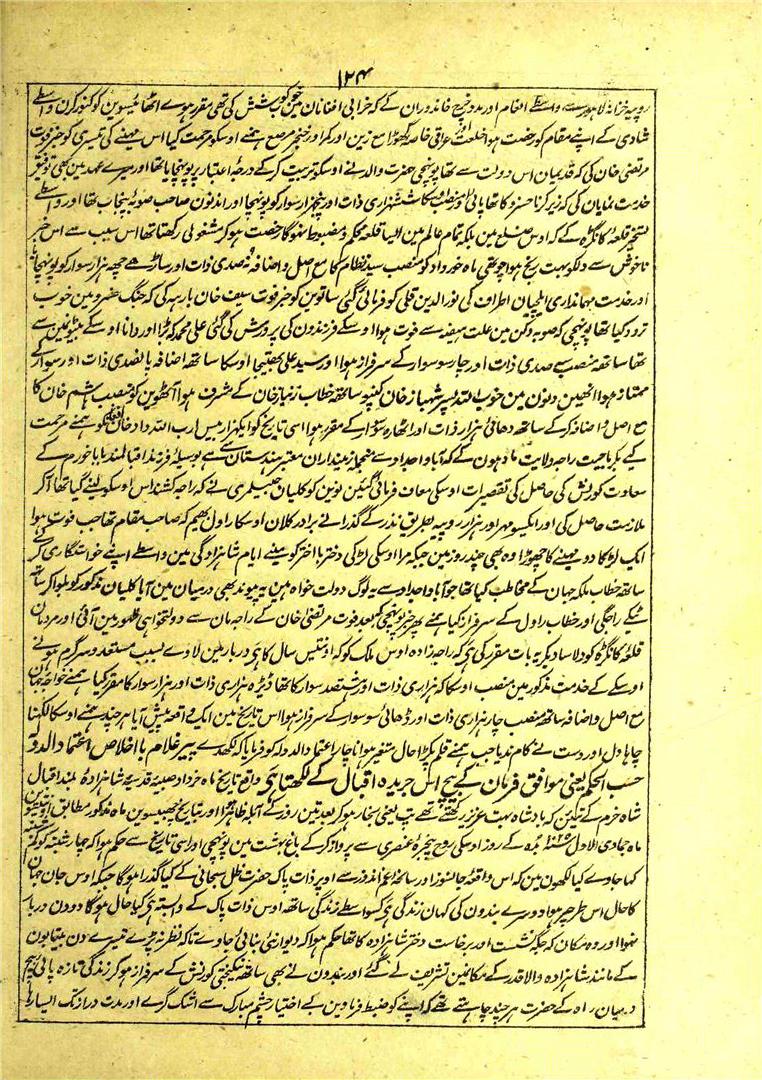 ۱۲۴
روپیہ خزانۂ لاہور سے واسطے انعام اور مدد خرچ خاندوران کے کہ خرابی افغانان مین خوب کوشش کی تھی مقرر ہوے اٹھائیسوین کو کنور کرن واسطے
شادی کے اپنے مقام کو رخصت ہوا خلعت عراقی خاصہ گھوڑا مع زین اور کمر اور خنجر مرصع ہمنے اوسکو مرحمت کیا اس مہینے کی تیسری کو خبر فوت
مرتضی خان کی کہ قدیمیان اس دولت سے تھا پونہچی حضرت والد نے اوسکو تربیت کر کے درجۂ اعتبار پر پونہچایا تھا اور میرے عہد مین بھی توفیق
خدمت نمایان کی کہ زیر کرنا خسرو کا تھا پائی اور منصب اوسکا ششہزاری ذات اور پنجہزار سوار کو پونہچا اور اندنون صاحب صوبۂ پنجاب تھا اور واسطے
تسخیر قلعۂ کانگڑہ کے کہ اوس ضلع مین بلکہ تمام عالم مین ایسا قلعہ محکم و مضبوط نہوگا رخصت ہو کر مشغولی رکھتا تھا اس سبب سے اس خبر
ناخوش سے دلکو بہت رنج ہوا چوتھی ماہ خورداد کو منصب سید نظام کا مع اصل و اضافہ نہصدی ذات اور ساڑھے چھہ ہزار سوار کو پونہچا
اور خدمت مہمانداری ایلچیان اطراف کی نور الدین قلی کو فرمائی گئی ساتوین کو خبر فوت سیف خان بارہہ کی کہ جنگ خسرو مین خوب
تردد کیا تھا پونہچی کہ صوبہ دکن مین علت ہیضہ سے فوت ہوا اوسکے فرزندون کی پرورش کی گئی علی محمد کہ بڑا اور دانا اوسکے بیٹونمین سے
تھا ساتھ منصب سہ صدی ذات اور چار سو سوار کے سرفراز ہوا اور سید علی بھتیجا اوسکا ساتھ اضافہ پانصدی ذات اور سوار کے
ممتاز ہوا انھین دنون مین خوب اللہ پسر شہباز خان کنبو ساتھ خطاب رنباز خان کے مشرف ہوا آٹھوین کو منصب ہاشم خان کا
مع اصل و اضافہ کے ساتھ دھائی ہزار ذات اور اٹھارہ سو سوار کے مقرر ہوا اسی تاریخ کو ایکہزار بیس ارب اللہ داد خان افغان کو ہمنے مرحمت
کیے بکرماجیت راجہ ولایت ماندہون کے کہ آبا و اجداد سے منجملۂ زمینداران معتبر ہندستان کے ہے بوسیلۂ فرزند اقبالمند بابا خورم کے
سعادت کورنش کی حاصل کی تقصیرات اوسکی معاف فرمائی گئین نوین کو کلیان جیسلمیری نے کہ راجہ کشنداس اوسکو لینے گیا تھا آ کر
ملازمت حاصل کی اور ایکسو مہر اور ہزار روپیہ بطریق نذر کے گذرانے برادر کلان اوسکا راول بھیم کہ صاحب مقام تھا جب فوت ہوا
ایک لڑکا دو مہینے کا چھوڑا وہ بھی چند روز مین جبکہ مرا اوسکی لڑکی دختر نیک اختر کو مینے ایام شاہزادگی مین واسطے اپنے خواستگاری کر کے
ساتھ خطاب ملکہ جہان کے مخاطب کیا تھا جو آبا و اجداد سے یہ لوگ دولت خواہ ہین یہ پیوند بھی درمیان مین آیا کلیان مذکور کو بلوا کر ساتھ
ٹیکے راجگی اور خطاب راول کے سرفراز کیا ہمنے پھر خبر پونہچی کہ بعد فوت مرتضی خان کے راجہ مان سے دولتخواہی ظہور مین آئی اور مردمان
قلعۂ کانگڑہ کو دلاسا دیکر یہ بات مقرر کی ہے کہ راجہ زادہ اوس ملک کو کہ اونتیس سال کا ہے دربار مین لاوے بسبب مستعد و سرگرم ہونے
اوسکے کے خدمت مذکور مین منصب اوسکا کہ ہزاری ذات اور ہشتصد سوار کا تھا ڈیڑہ ہزاری ذات اور ہزار سوار کا مقرر کیا ہمنے خواجہ جہان
مع اصل و اضافہ ساتھ منصب چار ہزاری ذات اور ڈھائی سو سوار کے سرفراز ہوا اس تاریخ مین ایک واقعہ پیش آیا ہر چند ہمنے اوسکا لکھنا
چاہا دل اور دست نے کام ندیا جب ہمنے قلم پکڑا حال متغیر ہوا ناچار اعتماد الدولہ کو فرمایا کہ لکھدے پیر غلام با اخلاص اعتماد الدولہ
حسب الحکم یعنی موافق فرمان کے بیچ اس جریدہ اقبال کے لکھتا ہے واقع تاریخ ماہ خرداد صبیہ قدسیہ شاہزادہ بلند اقبال
شاہ خرم کے تئین کہ بادشاہ بہت عزیز رکھتے تھے تپ یعنی بخار ہو کر بعد تین روز کے آبلہ ظاہر ہوا اور بتاریخ چھبیسوین ماہ مذکور مطابق انتیسوین
ماہ جمادی الاول ۱۰۲۵ سنہ بدہ کے روز اوسکی روح پنجرۂ عنصری سے پرواز کر کے باغ بہشت مین پونہچی اور اسی تاریخ سے حکم ہوا کہ چہار شنبہ کو کم شنبہ
کہا جاوے کیا لکھون مین کہ اس واقعۂ جانسوز اور سانحۂ غم اندوز سے اوپر ذات پاک حضرت ظل سبحانی کے کیا گذرا ہوگا جبکہ اوس جان جہان
کا حال اس طرحپر ہوا دوسرے بندون کی کہان زندگی ہے کسواسطے زندگی ساتھ اوس ذات پاک کے وابستہ ہے کیا حال ہوگا دو دن دربار
نہوا اور وہ مکان کہ جگہ نشست اور برخاست دختر شاہزادہ کا تھا حکم ہوا کہ دیوار نئی بنائی جاوے تاکہ نظر نہ پڑے تیسرے دن بیتابون
کے مانند شاہزادہ والا قدر کے مکانمین تشریف لے گئے اور بندون نے بھی ساتھ نیکبختی کورنش کے سرفراز ہو کر زندگی تازہ پائی بیچ
درمیان راہ کے حضرت ہر چند چاہتے تھے کہ اپنے کو ضبط فرماوین بے اختیار چشم مبارک سے اشک گرے اور مدت دراز تک ایسا رہا